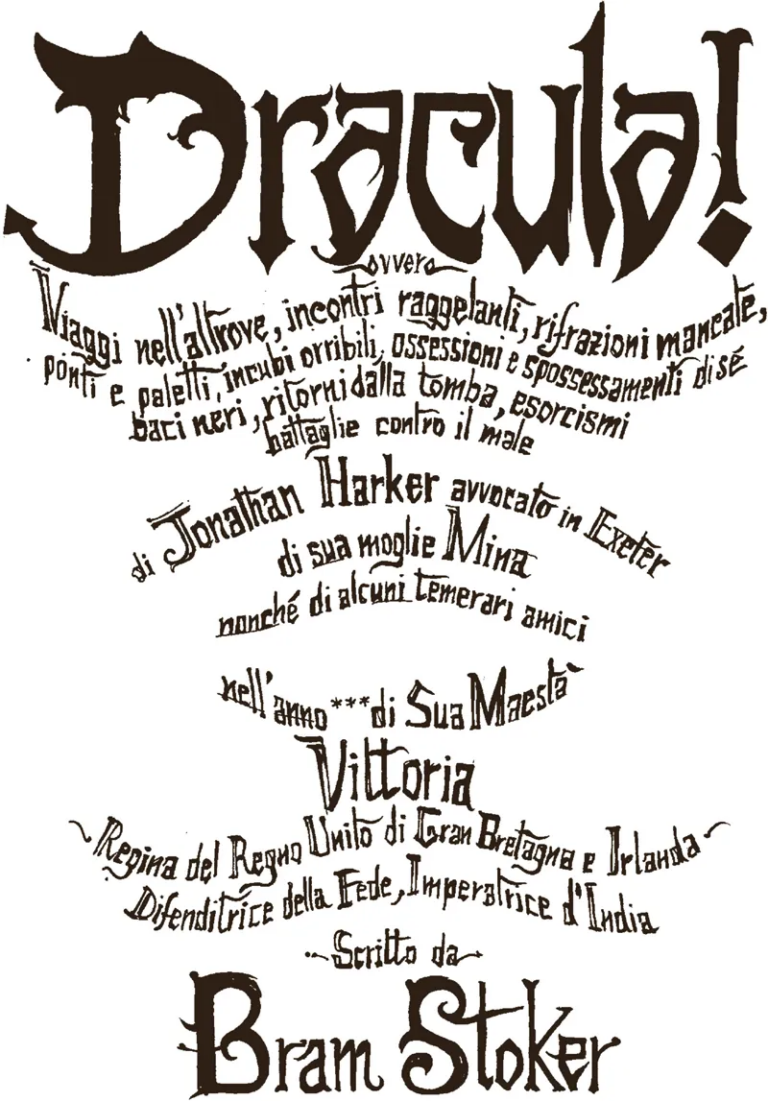 Dracula!
ovvero
Viaggi nell'altrove, incontri raggelanti, rifrazioni mancate,
ponti e paletti, incubi orribili, ossessioni e spossessamenti di sé
baci neri, ritorni dalla tomba, esorcismi
battaglie contro il male
di Jonathan Harker avvocato in Exeter
di sua moglie Mina
nonché di alcuni temerari amici
nell'anno *** di Sua Maestà
Vittoria
Regina del Regno Unito di Gran Bretagna e Irlanda
Difenditrice della Fede, Imperatrice d'India
Scritto da
Bram Stoker